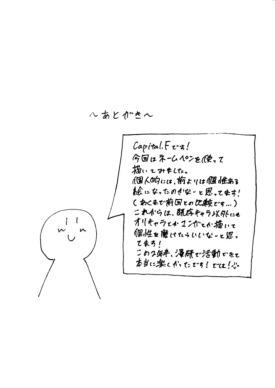 ～あとがき～
Capital.Fです！
今回はネームペンを使って
描いてみました。
個人的には、前よりは個性ある
絵になったのかな～と思ってます！
(あくまで前回との比較です…)
これからは、既存キャラ以外にも
オリキャラとかマンガとか描いて
個性を磨けたらいいな～と思っ
てます！
この2年半、漫研で活動できて
本当に楽しかったです！では！